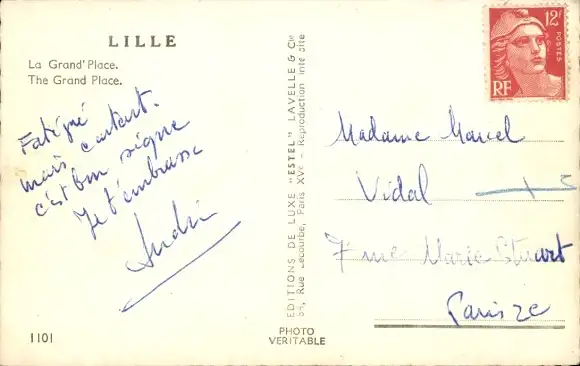 LILLE
La Grand'Place.
The Grand Place.
Fatigué
mais content.
c'est bon signe
Je t'embrasse
André
1101
EDITIONS DE LUXE "ESTEL" LAVELLE & Cie
Rue Lecourbe, Paris XVe - Reproduction inte
PHOTO
VERITABLE
12F
POSTES
RF
Madame Marcel
Vidal
7 rue Marie Stuart
Paris 2e